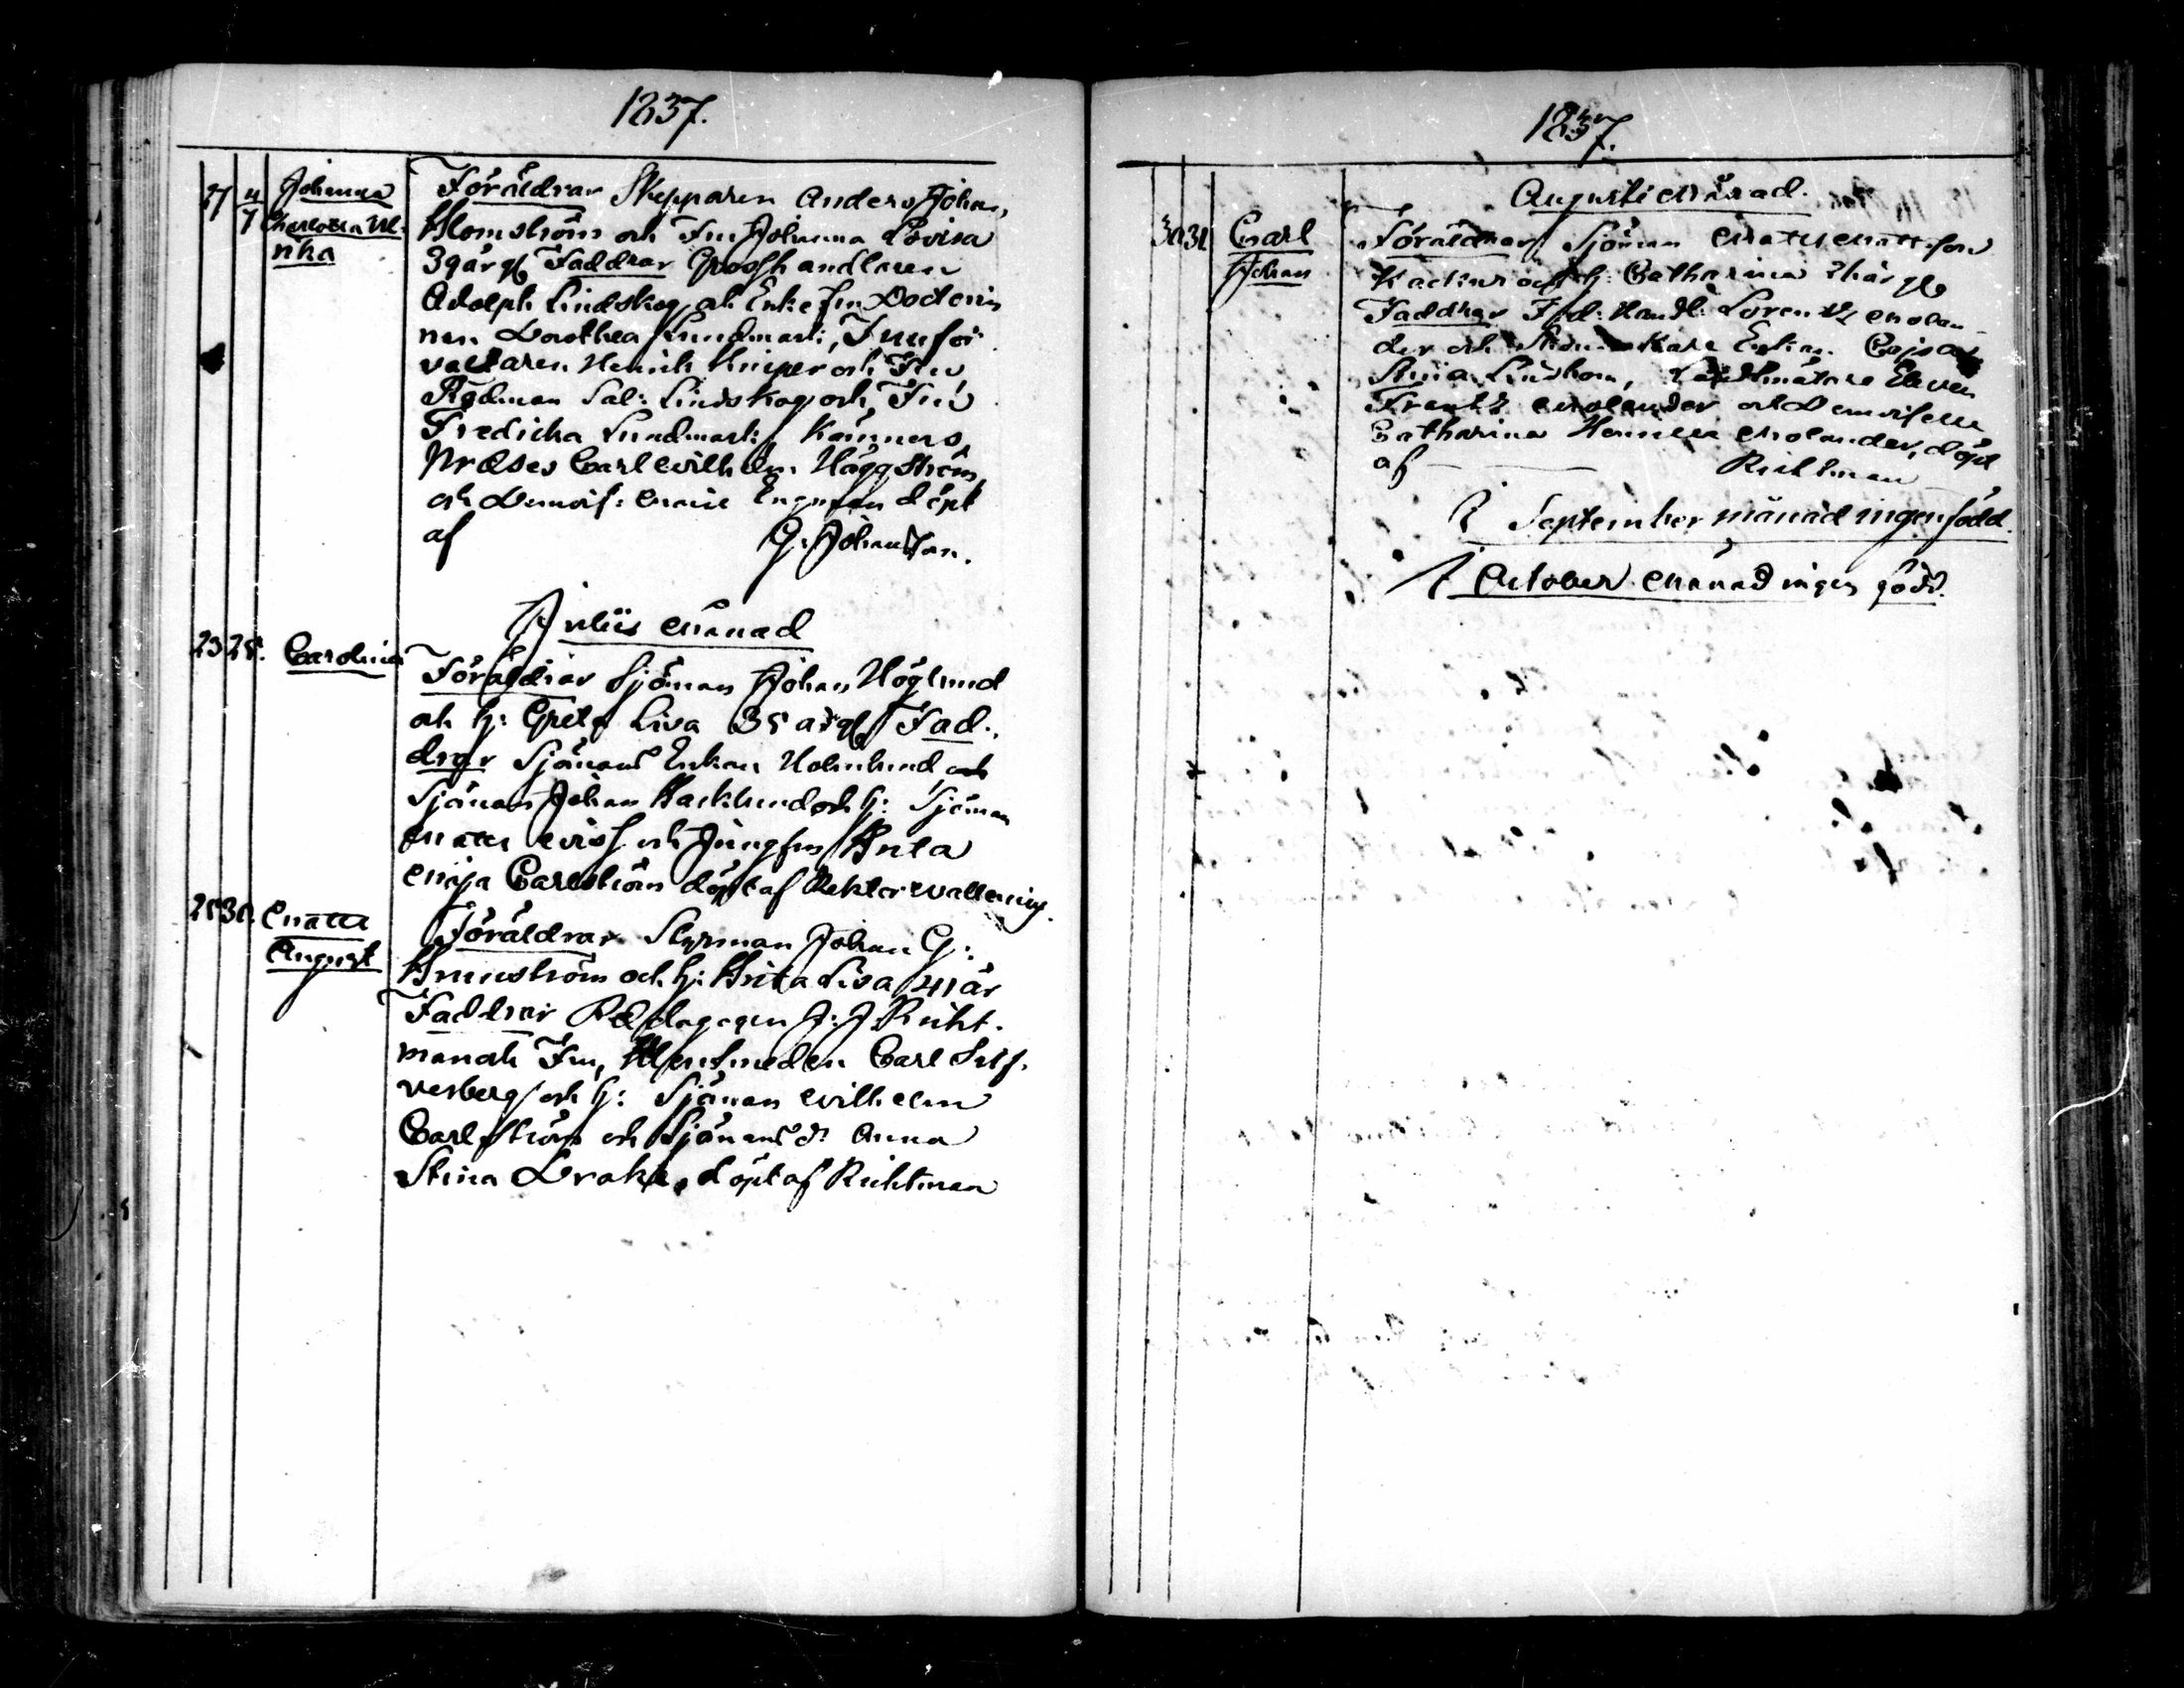 1837.
27 4/7 Johanna Charlotta Ul-
rika
Föräldrar Skepparen Anders Johan
Blomström och Fru Johanna Lovisa
39 år gl Faddrar Grosshandlaren
Adolph Lindskog och Enke fru Doctorin
nan Dorothea Lundmark, Inn för
valtaren Henrik Kniper och Fru
Rådman Sal: Lindskog och Fru
Fredicka Lundmark, Kämners
Præses Carl Wilhelm Häggström
och Demois: Maria Engman döpt
af G: Johansson.
Julii Månad
23 25. Carolina
Föräldrar Sjöman Johan Höglund
och h: Greta Lisa 35 år gl Fad-
drar Sjömans Enkan Holmlund och
Sjöman Johan Backlund och h: Sjöman
Matts Wiss och Jungfru Brita
Maja Carlström döpt af Rektor Wallenius.
28 30 Matts
August
Föräldrar Styrman Johan G:
Brunström och h: Brita Lisa 41 år
Faddrar Pædagogen J: J. Richt-
man och Fru, Klensmeden Carl Silf-
verberg och h: Sjöman Wilhelm
Carlström och Sjömans d: Anna
Stina Drake, döpt af Richtman
1837.
Augusti Månad.
30 31 Carl
Johan
Föräldrar Sjöman Matts Mattsson
och h: Catharina år gl
Faddrar Handl: Lorentz Molan-
der och Enkan Cajsa
Stina Lindbom, Landtmätare Eleven
Frantz Molander och Demoiselle
Catharina Helena Molander, döpt
af Richtman
I September månad ingen född.
I October Månad ingen född.